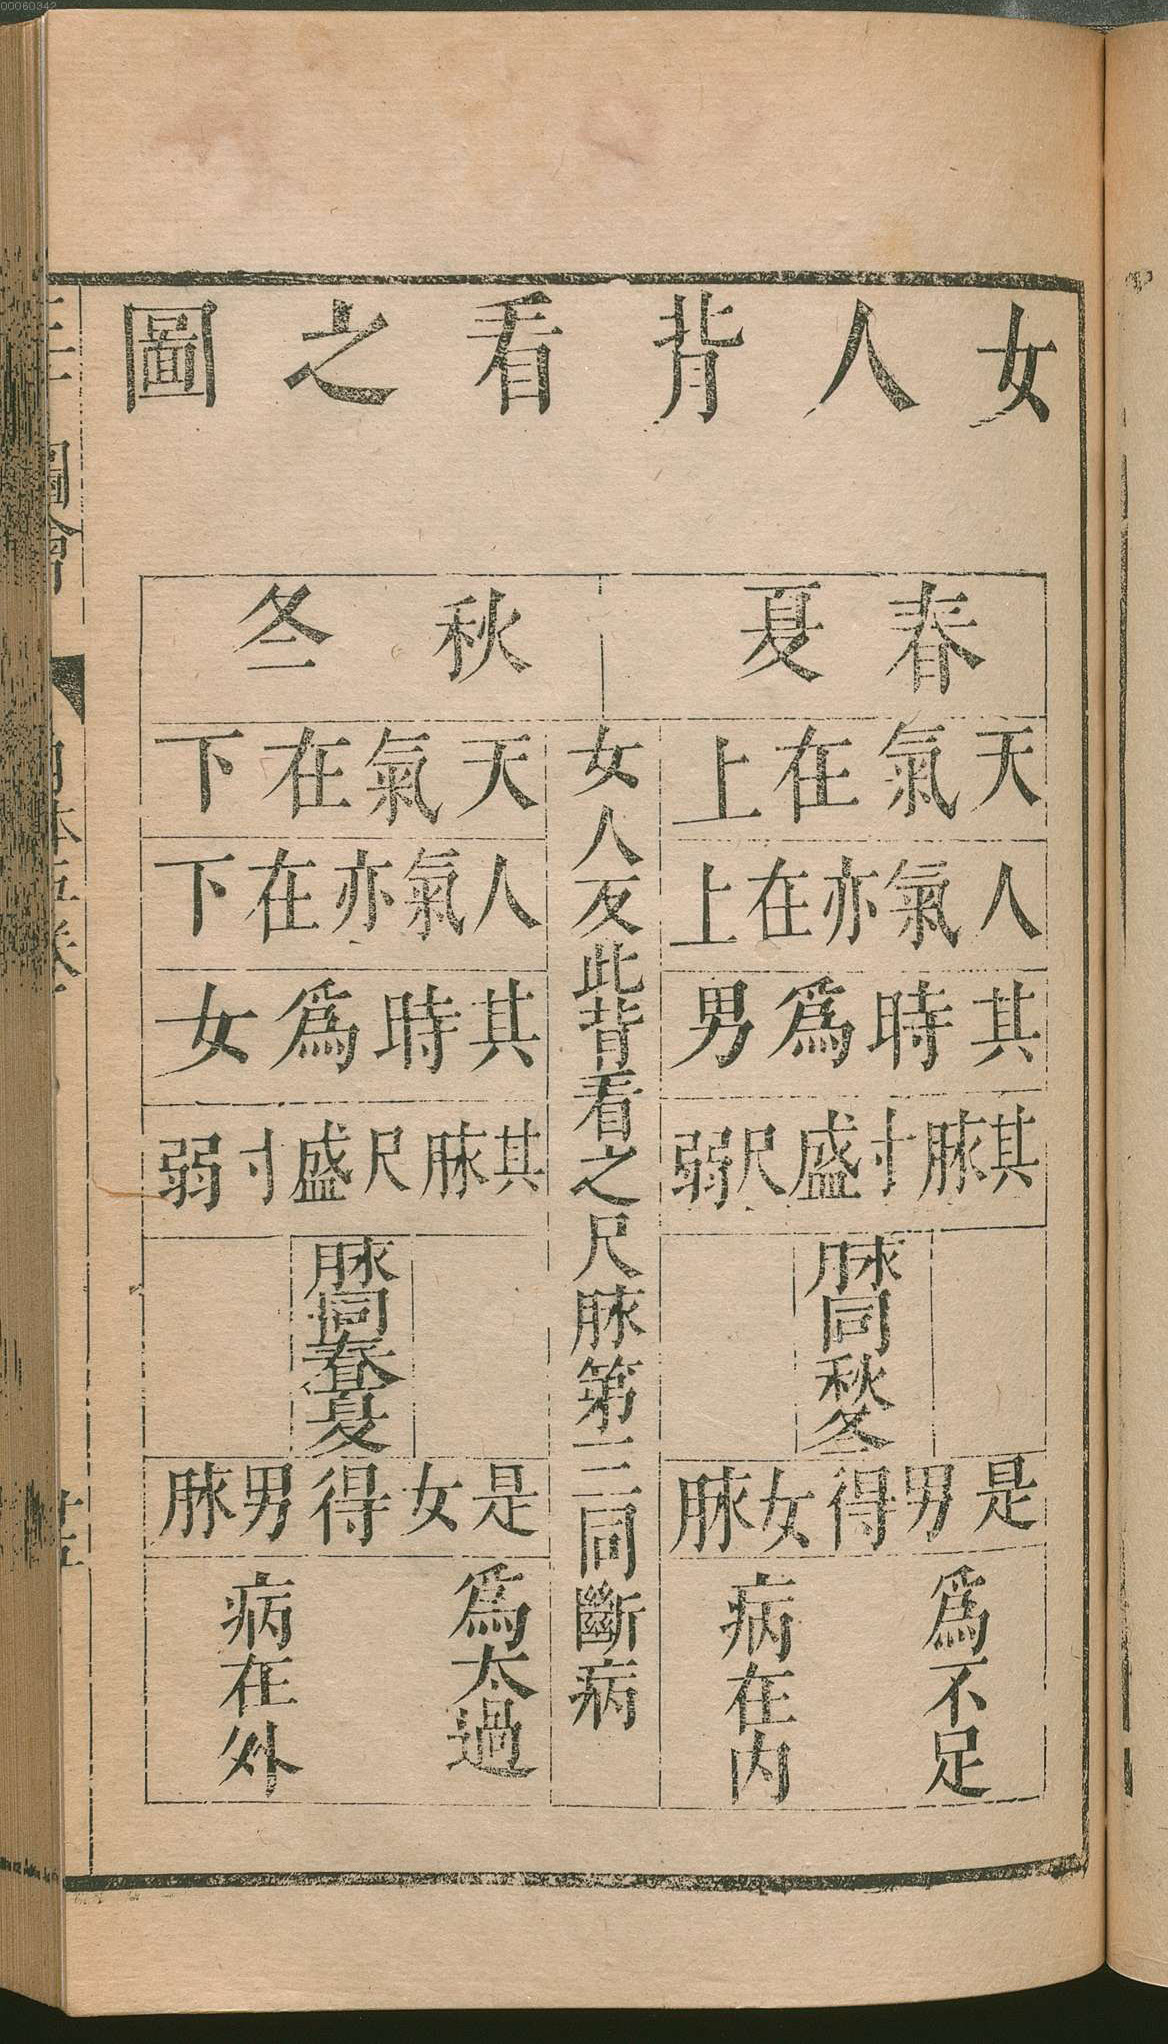 00060342
女人背看之圖
春夏
天氣在上
人氣亦在上
其時爲男
其脉寸盛尺弱
脉同秋冬
是男得女脉
爲不足
病在内
女人反此背看之尺脉第三同斷病
秋冬
天氣在下
人氣亦在下
其時爲女
其脉尺盛寸弱
脉同春夏
是女得男脉
爲太過
病在外
圖會